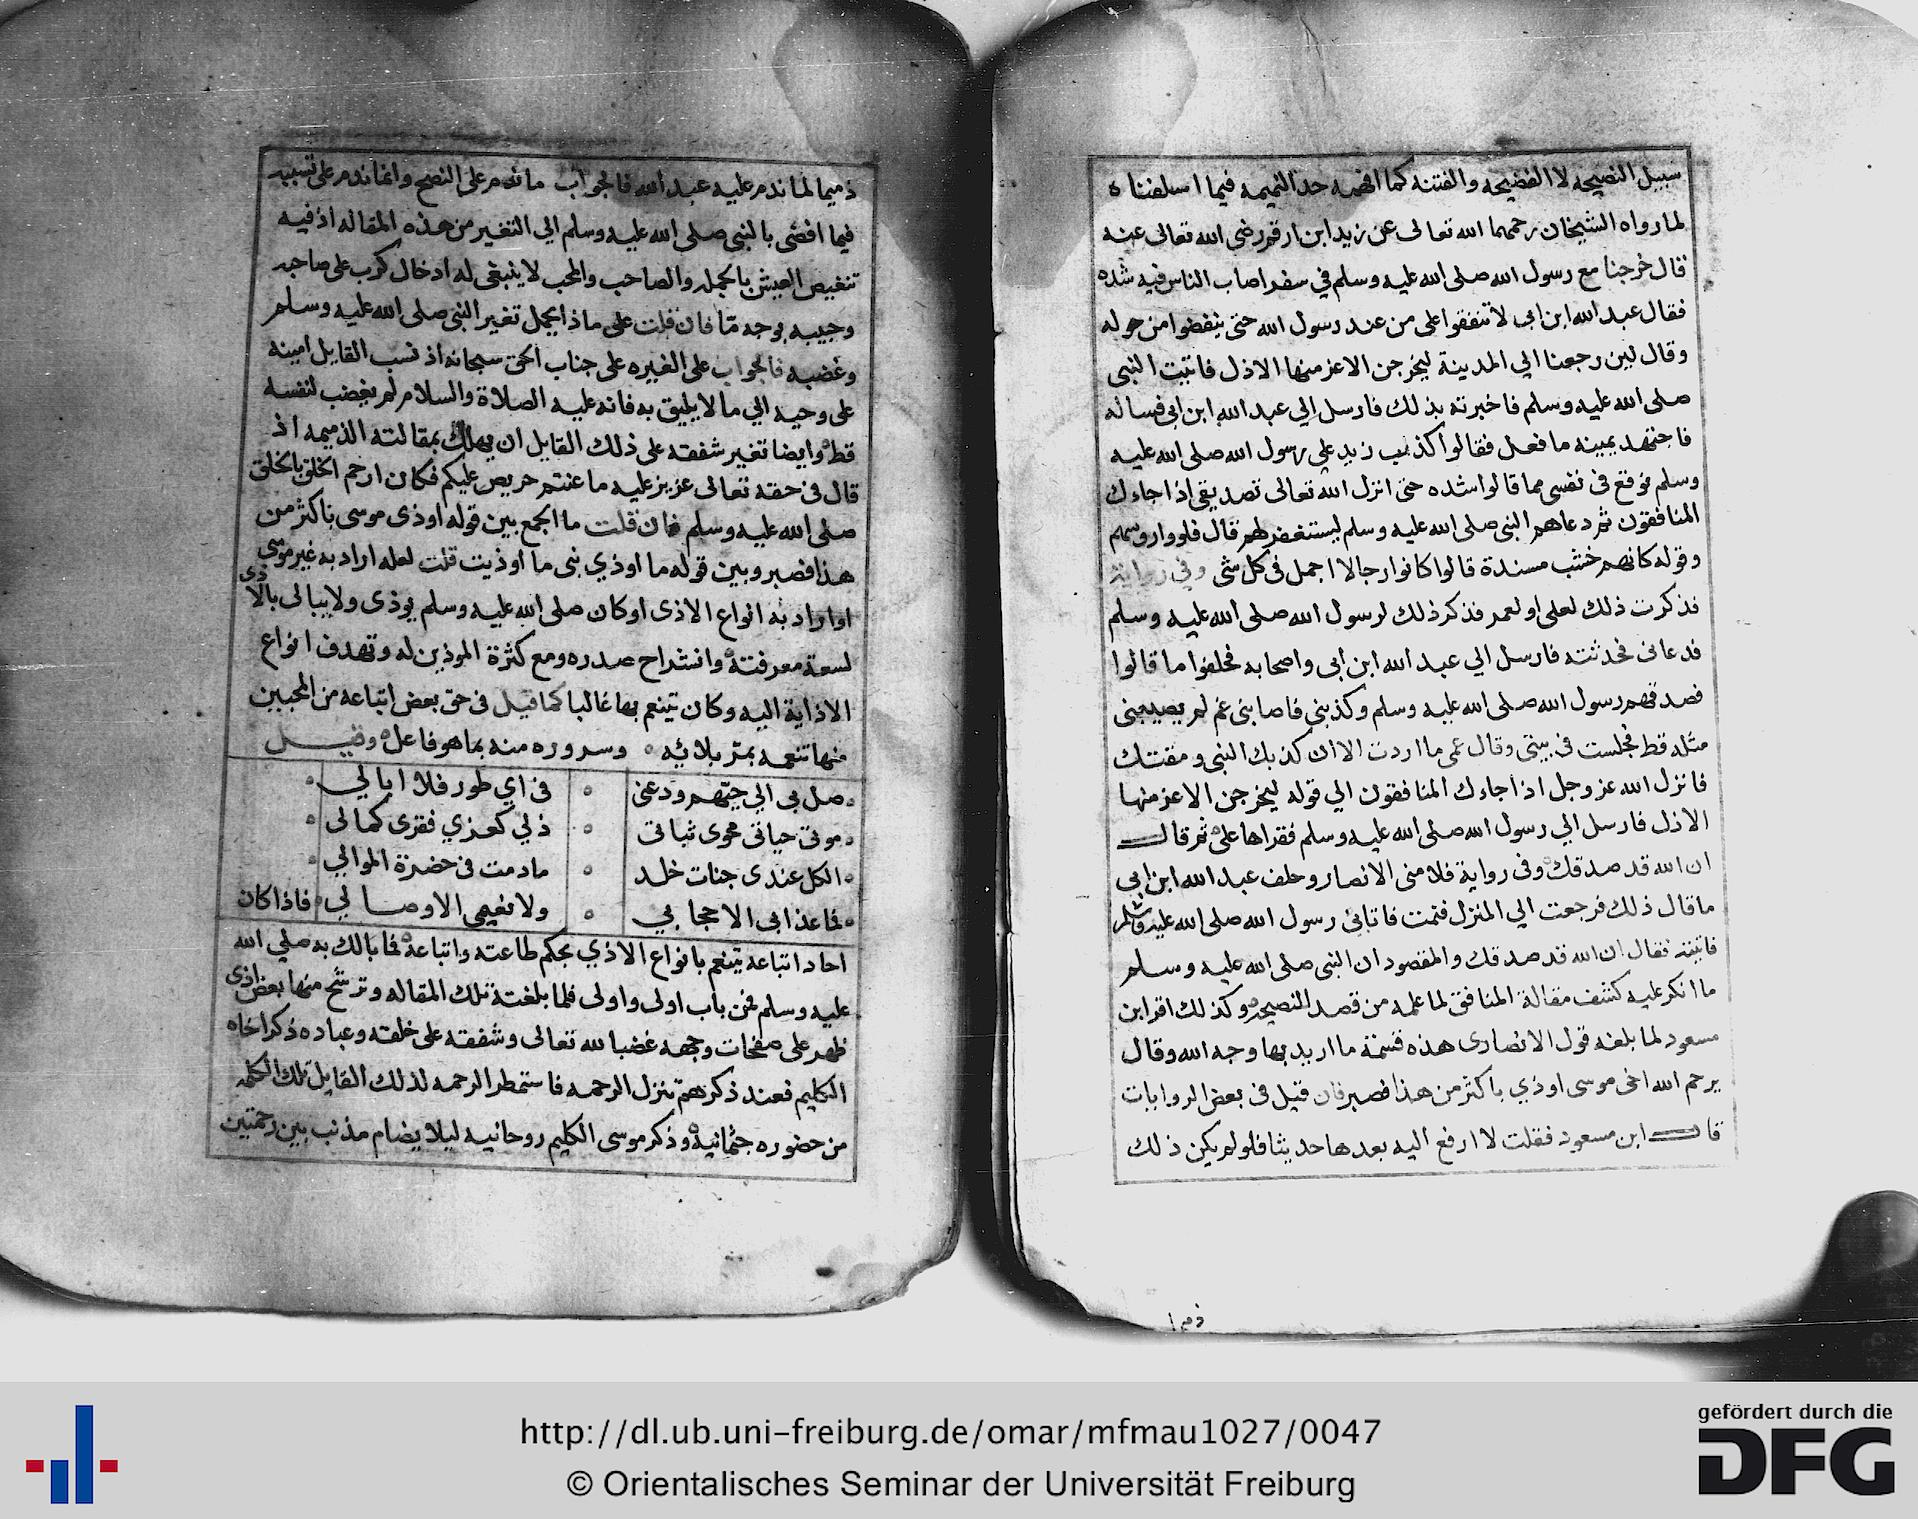 سبيل النصيحه لا الفضيحه والفتنه كما افهمه حد النميمه فيما اسلفناه
لما رواه الشيخان رحمهما الله تعالى عن زيد ابن ارقم رضى الله تعالى عنه
قال خرجنا مع رسول الله صلى الله عليه وسلم في سفر اصاب الناس فيه شده
فقال عبد الله ابن ابى لا تنفقوا على من عند رسول الله حتى ينفضوا من حوله
وقال لين رجعنا الي المدينة ليخرجن الاعز منها الاذل فاتيت النبى
صلى الله عليه وسلم فاخبرته بذلك فارسل الي عبد الله ابن ابى فساله
فاجتهد يمينه ما فعل فقالوا كذب زيد على رسول الله صلى الله عليه
وسلم فوقع فى نفسى مما قالوا شده حتى انزل الله تعالى تصديقى اذا جاءك
المنافقون ثم دعاهم النبى صلى الله عليه وسلم ليستغفر لهم قال فلووا روسهم
وقوله كانهم خشب مسندة قالوا كانوا رجالا اجمل فى كل شى وفي رواية
فذكرت ذلك لعلى او لعمر فذكر ذلك لرسول الله صلى الله عليه وسلم
فدعانى فحدثته فارسل الي عبد الله ابن ابى واصحابه فحلفوا ما قالوا
فصدقهم رسول الله صلى الله عليه وسلم وكذبني فاصابنى غم لم يصيبنى
مثله قط فجلست فى بيتى وقال عمى ما اردت الا ان كذبك النبى ومقتك
فانزل الله عز وجل اذا جاءك المنافقون الي قوله ليخرجن الاعز منها
الاذل فارسل الي رسول الله صلى الله عليه وسلم فقراها على ثم قال
ان الله قد صدقك وفى رواية فلامنى الانصار وحلف عبد الله ابن ابي
ما قال ذلك فرجعت الي المنزل فنمت فاتانى رسول الله صلى الله عليه وسلم
فاتيته فقال ان الله قد صدقك والمقصود ان النبى صلى الله عليه وسلم
ما انكر عليه كشف مقالة المنافق لما علمه من قصد النصيحه وكذلك اقر ابن
مسعود لما بلغه قول الانصارى هذه قسمة ما اريد بها وجه الله وقال
يرحم الله اخى موسى اوذي باكثر من هذا فصبر فان قيل فى بعض الروايات
قال ابن مسعود فقلت لا ارفع اليه بعدها حديثا فلو لم يكن ذلك
ذميما
ذميما لما ندم عليه عبد الله فالجواب ما ندم على النصح وانما ندم على تسببه
فيما افضى بالنبى صلى الله عليه وسلم الي التغير من هذه المقاله اذ فيه
تنغيص العيش بالجمله والصاحب والمحب لا ينبغى له ادخال كرب على صاحبه
وحبيبه بوجه مّا فان قلت على ماذا يحمل تغير النبى صلى الله عليه وسلم
وغضبه فالجواب على الغيره على جناب الحق سبحانه اذ نسب القايل امينه
على وحيه الي ما لا يليق به فانه عليه الصلاة والسلام لم يغضب لنفسه
قط وايضا تغير شفقه على ذلك القايل ان يهلك بمقالته الذميمه اذ
قال فى حقه تعالى عزيز عليه ما عنتم حريص عليكم فكان ارحم الخلق بالخلق
صلى الله عليه وسلم فان قلت ما الجمع بين قوله اوذى موسى باكثر من
هذا فصبر وبين قوله ما اوذي نبى ما اوذيت قلت لعله اراد به غير موسى
او اراد به انواع الاذى او كان صلى الله عليه وسلم يوذى ولا يبالى بالاذى
لسعة معرفته وانشراح صدره ومع كثرة الموذين له وتهدف انواع
الاذاية اليه وكان يتنعم بها غالبا كما قيل فى حق بعض اتباعه من المحبين
منها تنعمه بمرّ بلائه وسروره منه بما هو فاعل وقيل
صل بى الي حيّهم ودعنى فى اي طور فلا ابالي
موتى حياتى محوى ثباتى ذلي كعزي فقرى كمالى
الكل عندى جنات خلد ما دمت فى حضرة الموالي
فما عذابى الا حجابي ولا نعيمى الا وصالي فاذا كان
احاد اتباعه يتنعم بانواع الاذي بحكم طاعته واتباعه فما بالك به صلي الله
عليه وسلم فمن باب اولى واولى فلما بلغته تلك المقاله وترشح منها بعض اذى
ظهر على صفحات وجهه غضبا لله تعالى وشفقه على خلقه وعباده ذكر اخاه
الكليم فعند ذكرهم تنزل الرحمه فاستمطر الرحمه لذلك القايل تلك الكلمه
من حضوره جثمانيه وذكر موسى الكليم روحانيه ليلا يضام مذنب بين رحمتين
http://dl.ub.uni-freiburg.de/omar/mfmau1027/0047
© Orientalisches Seminar der Universität Freiburg
gefördert durch die
DFG